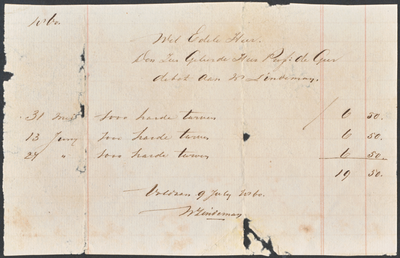 1860
Wel Edele Heer.
Den Zeer Geleerde Heer Prof: de Gee
debet aan W Lindeman.
31 1000 harde turven / 6 50.
13 Juny 1000 harde turven 6 50.
27 " 1000 harde turven 6 50.
19 50.
Voldaan 9 July 1860.
W Lindeman